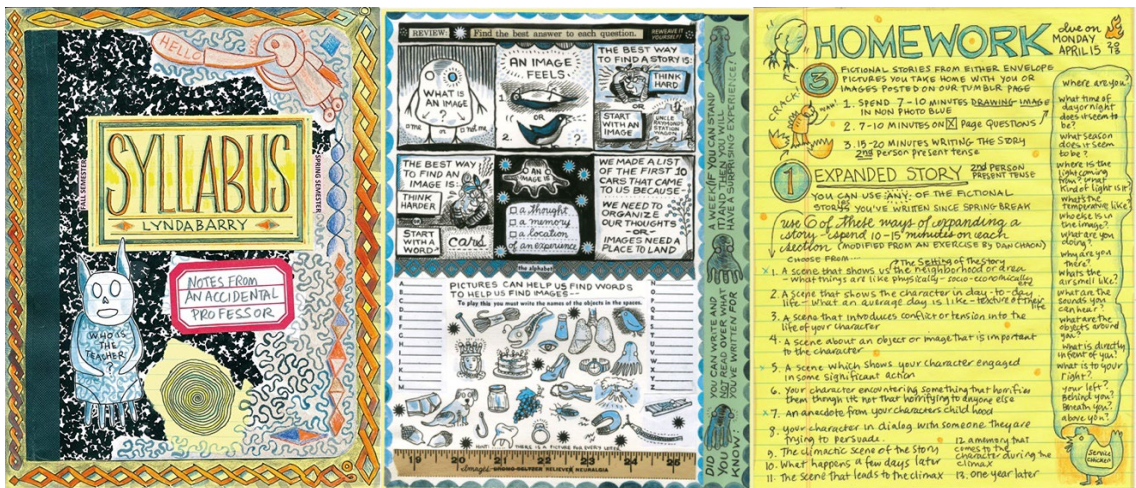 HELLO
SYLLABUS
LYNDA BARRY
FALL SEMESTER
SPRING SEMESTER
NOTES FROM
AN ACCIDENTAL
PROFESSOR
WHO IS
THE
TEACHER
?
REVIEW: Find the best answer to each question.
REWEAVE IT
YOURSELF!
WHAT IS
AN IMAGE
?
AN IMAGE
FEELS
1.
OR
2.
?
THE BEST WAY
TO FIND A STORY IS:
THINK
HARD
OR
START
WITH AN
IMAGE
UNCLE
RAYMOND'S
STATION
WAGON
THE BEST WAY
TO FIND AN
IMAGE IS:
THINK
HARDER
OR
START
WITH A
WORD
cars
AN
IMAGE IS
a thought
a memory
a location
of an experience
WE MADE A LIST
OF THE FIRST 10
CARS THAT CAME
TO US BECAUSE—
WE NEED TO
ORGANIZE
OUR THOUGHTS
-OR-
IMAGES NEED A
PLACE TO LAND
the alphabet
PICTURES CAN HELP US FIND WORDS
TO HELP US FIND IMAGES--
To play this you must write the names of the objects in the spaces.
HINT: THERE IS A PICTURE FOR EVERY LETTER
19 20 21 22 23 24 25
DID YOU KNOW?
YOU CAN WRITE AND
NOT READ OVER WHAT
YOU'VE WRITTEN FOR
A WEEK (IF YOU CAN STAND
IT) AND THEN YOU WILL
HAVE A SURPRISING EXPERIENCE!
HOMEWORK
due on
MONDAY
APRIL 15 2013
CRACK!
3 FICTIONAL STORIES FROM EITHER ENVELOPE
PICTURES YOU TAKE HOME WITH YOU OR
IMAGES POSTED ON OUR TUMBLR PAGE
1. SPEND 7-10 MINUTES DRAWING IMAGE
IN NON PHOTO BLUE
2. 7-10 MINUTES ON X Page Questions
3. 15-20 MINUTES WRITING THE STORY
2nd person present tense
1 EXPANDED STORY 2ND PERSON
PRESENT TENSE
YOU CAN USE ANY OF THE FICTIONAL
STORIES YOU'VE WRITTEN SINCE SPRING BREAK
use 6 of these ways of expanding a
story - spend 10-15 minutes on each
section (MODIFIED FROM AN EXERCISE BY DAN CHAON)
CHOOSE FROM--
The Setting of the Story
1. A scene that shows us the neighborhood or area
- what things are like physically - socio-economically
2. A scene that shows the character in day-to-day
life - What an average day is like - texture of their life
3. A scene that introduces conflict or tension into the
life of your character
4. A scene about an object or image that is important
to the character
5. A scene which shows your character engaged
in some significant action
6. Your character encountering something that horrifies
them though it's not that horrifying to anyone else
7. An anecdote from your characters child hood
8. your character in dialog with someone they are
trying to persuade.
9. The climactic scene of the story
10. What happens a few days later
11. The scene that leads to the climax
12. a memory that
comes to the
character during the
climax
13. One year later
where are you?
what time of
day or night
does it seem to
be?
what season
does it seem
to be?
where is the
light coming
from? what
kind of light is it?
what's the
temperature like?
who else is in
the image?
what are you
doing?
why are you
there?
whats the
air smell like?
what are the
sounds you
can hear?
what are the
objects around
you?
what is directly
in front of you?
what is to your
right?
your left?
Behind you?
Beneath you?
above you?
Service
chicken